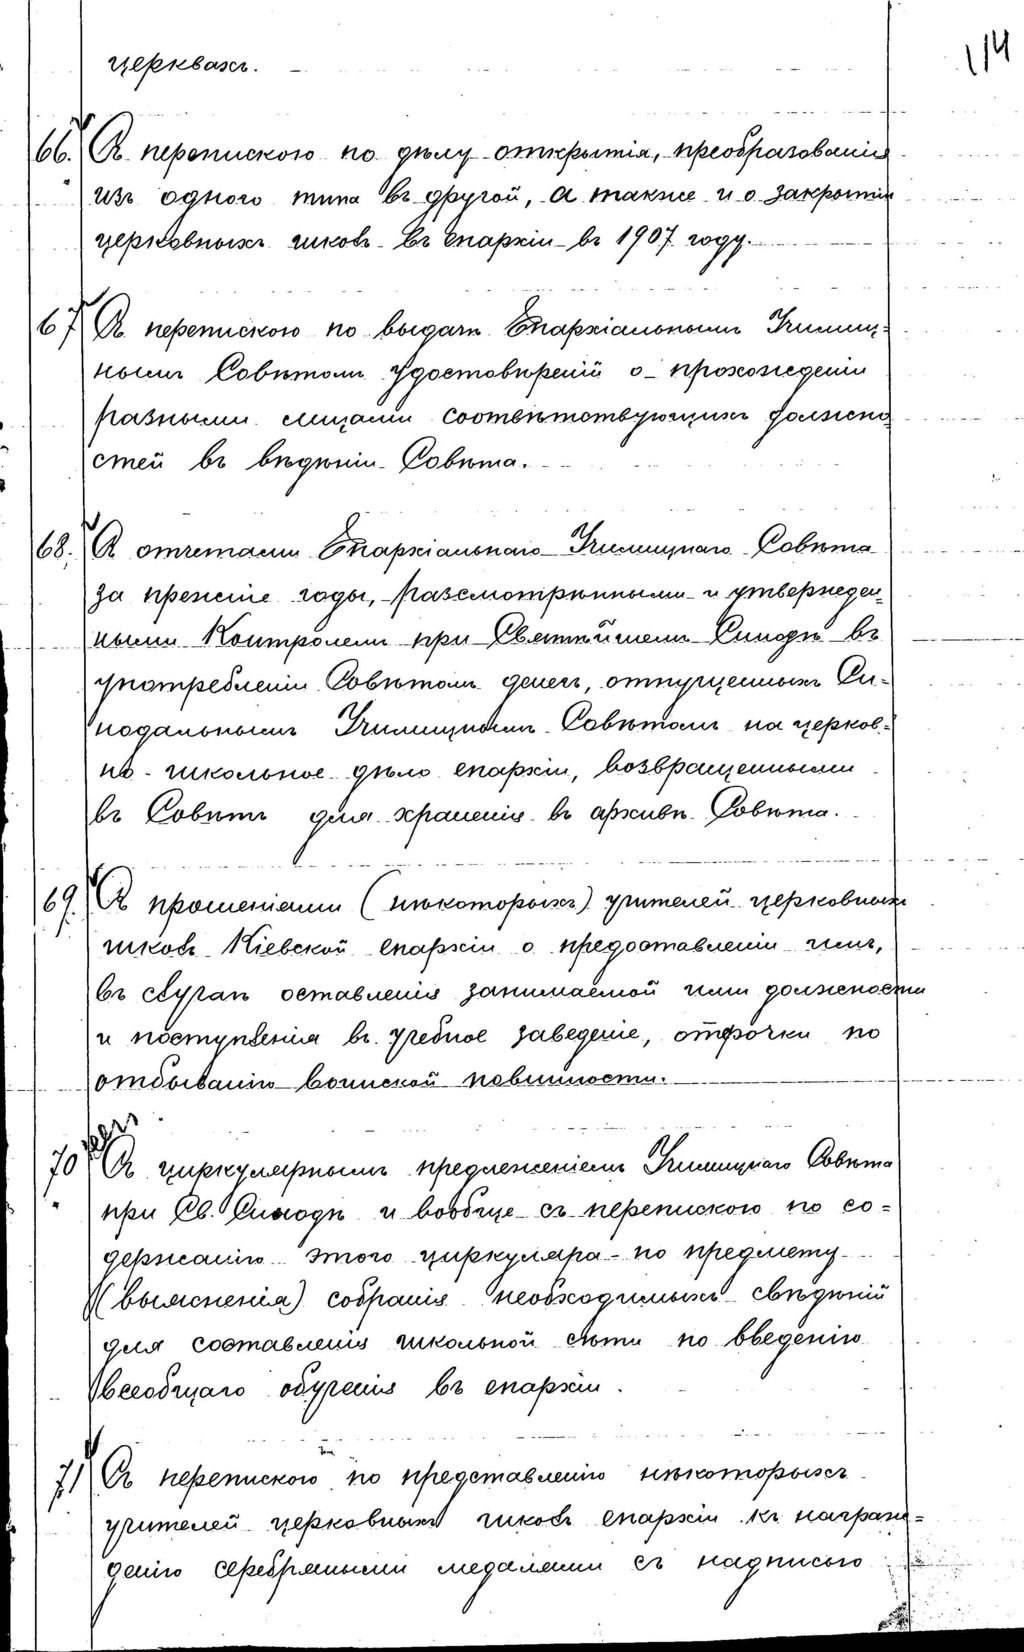 церквахъ.
114
66. Съ перепискою по дѣлу открытія, преобразованія
изъ одного типа въ другой, а также и о закрытіи
церковныхъ школъ въ епархіи въ 1907 году.
67 Съ перепискою по выдачѣ Епархіальнымъ Училищ=
нымъ Совѣтомъ удостовѣреній о прохожденіи
разными лицами соотвѣтствующихъ должно
стей въ вѣдѣніи Совѣта.
68. Съ отчетами Епархіальнаго Училищнаго Совѣта
за прежніе годы, разсмотрѣнными и утвержден=
ными Контролемъ при Святѣйшемъ Синодѣ въ
употребленіи Совѣтомъ денегъ, отпущенныхъ Си-
нодальнымъ Училищнымъ Совѣтомъ на церков=
но-школьное дѣло епархіи, возвращенными
въ Совѣтъ для храненія въ архивѣ Совѣта.
69. Съ прошеніями (нѣкоторыхъ) учителей церковныхъ
школъ Кіевской епархіи о предоставленіи имъ,
въ случаѣ оставленія занимаемой ими должности
и поступленія въ учебное заведеніе, отсрочки по
отбыванію воинской повинности.
70 Съ циркулярнымъ предложеніемъ Училищнаго Совѣта
при Св. Синодѣ и вообще съ перепискою по со=
держанію этого циркуляра - по предмету
(выясненія) собранія необходимыхъ свѣдѣній
для составленія школьной сѣти по введенію
всеобщаго обученія въ епархіи.
71 Съ перепискою по представленію нѣкоторыхъ
учителей церковныхъ школъ епархіи къ награж=
денію серебряными медалями съ надписью